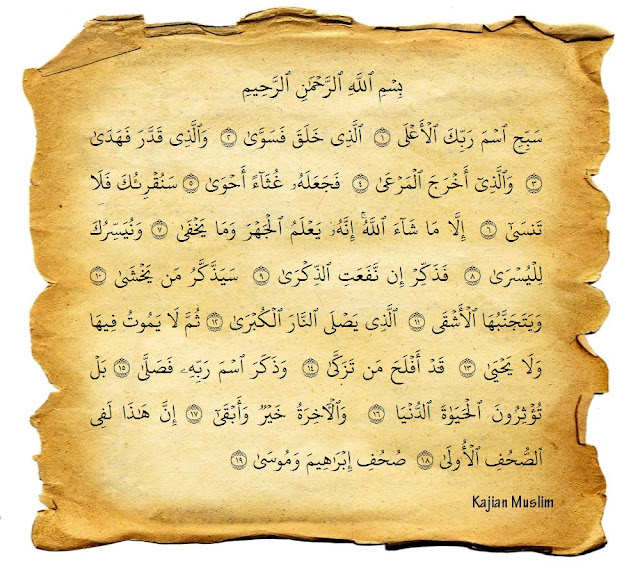 بِسْمِ ٱللَّهِ ٱلرَّحْمَٰنِ ٱلرَّحِيمِ
سَبِّحِ ٱسْمَ رَبِّكَ ٱلْأَعْلَى ١ ٱلَّذِى خَلَقَ فَسَوَّىٰ ٢ وَٱلَّذِى قَدَّرَ فَهَدَىٰ
٣ وَٱلَّذِىٓ أَخْرَجَ ٱلْمَرْعَىٰ ٤ فَجَعَلَهُۥ غُثَآءً أَحْوَىٰ ٥ سَنُقْرِئُكَ فَلَا
تَنسَىٰٓ ٦ إِلَّا مَا شَآءَ ٱللَّهُ ۚ إِنَّهُۥ يَعْلَمُ ٱلْجَهْرَ وَمَا يَخْفَىٰ ٧ وَنُيَسِّرُكَ
لِلْيُسْرَىٰ ٨ فَذَكِّرْ إِن نَّفَعَتِ ٱلذِّكْرَىٰ ٩ سَيَذَّكَّرُ مَن يَخْشَىٰ ١٠
وَيَتَجَنَّبُهَا ٱلْأَشْقَى ١١ ٱلَّذِى يَصْلَى ٱلنَّارَ ٱلْكُبْرَىٰ ١٢ ثُمَّ لَا يَمُوتُ فِيهَا
وَلَا يَحْيَىٰ ١٣ قَدْ أَفْلَحَ مَن تَزَكَّىٰ ١٤ وَذَكَرَ ٱسْمَ رَبِّهِۦ فَصَلَّىٰ ١٥ بَلْ
تُؤْثِرُونَ ٱلْحَيَوٰةَ ٱلدُّنْيَا ١٦ وَٱلْءَاخِرَةُ خَيْرٌ وَأَبْقَىٰٓ ١٧ إِنَّ هَٰذَا لَفِى
ٱلصُّحُفِ ٱلْأُولَىٰ ١٨ صُحُفِ إِبْرَٰهِيمَ وَمُوسَىٰ ١٩
Kajian Muslim